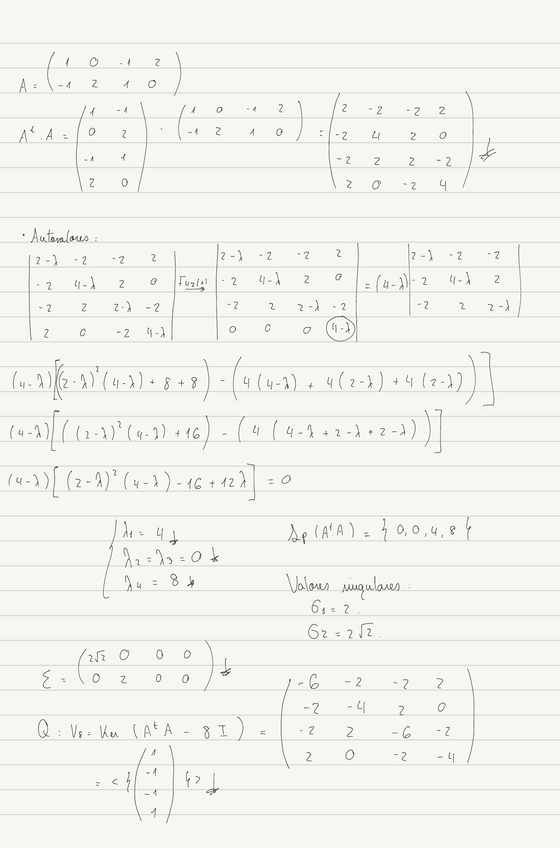 A = ( 1 0 -1 2 ; -1 2 1 0 )
Aᵗ · A = ( 1 -1 ; 0 2 ; -1 1 ; 2 0 ) · ( 1 0 -1 2 ; -1 2 1 0 ) = ( 2 -2 -2 2 ; -2 4 2 0 ; -2 2 2 -2 ; 2 0 -2 4 )
· Autovalores:
| 2-λ -2 -2 2 ; -2 4-λ 2 0 ; -2 2 2-λ -2 ; 2 0 -2 4-λ | → | 2-λ -2 -2 2 ; -2 4-λ 2 0 ; -2 2 2-λ -2 ; 0 0 0 4-λ | = (4-λ) | 2-λ -2 -2 ; -2 4-λ 2 ; -2 2 2-λ |
(4-λ)[((2-λ)² (4-λ) + 8 + 8) - (4 (4-λ) + 4 (2-λ) + 4 (2-λ))]
(4-λ)[((2-λ)² (4-λ) + 16) - (4 (4-λ + 2-λ + 2-λ))]
(4-λ)[(2-λ)² (4-λ) - 16 + 12λ] = 0
λ1 = 4
λ2 = λ3 = 0
λ4 = 8
Sp (AᵗA) = { 0, 0, 4, 8 }
Valores singulares:
σ1 = 2.
σ2 = 2√2.
Σ = ( 2√2 0 0 0 ; 0 2 0 0 )
Q: V8 = Ker (Aᵗ A - 8 I) = ( -6 -2 -2 2 ; -2 -4 2 0 ; -2 2 -6 -2 ; 2 0 -2 -4 )
= < { ( 1 ; -1 ; -1 ; 1 ) } >